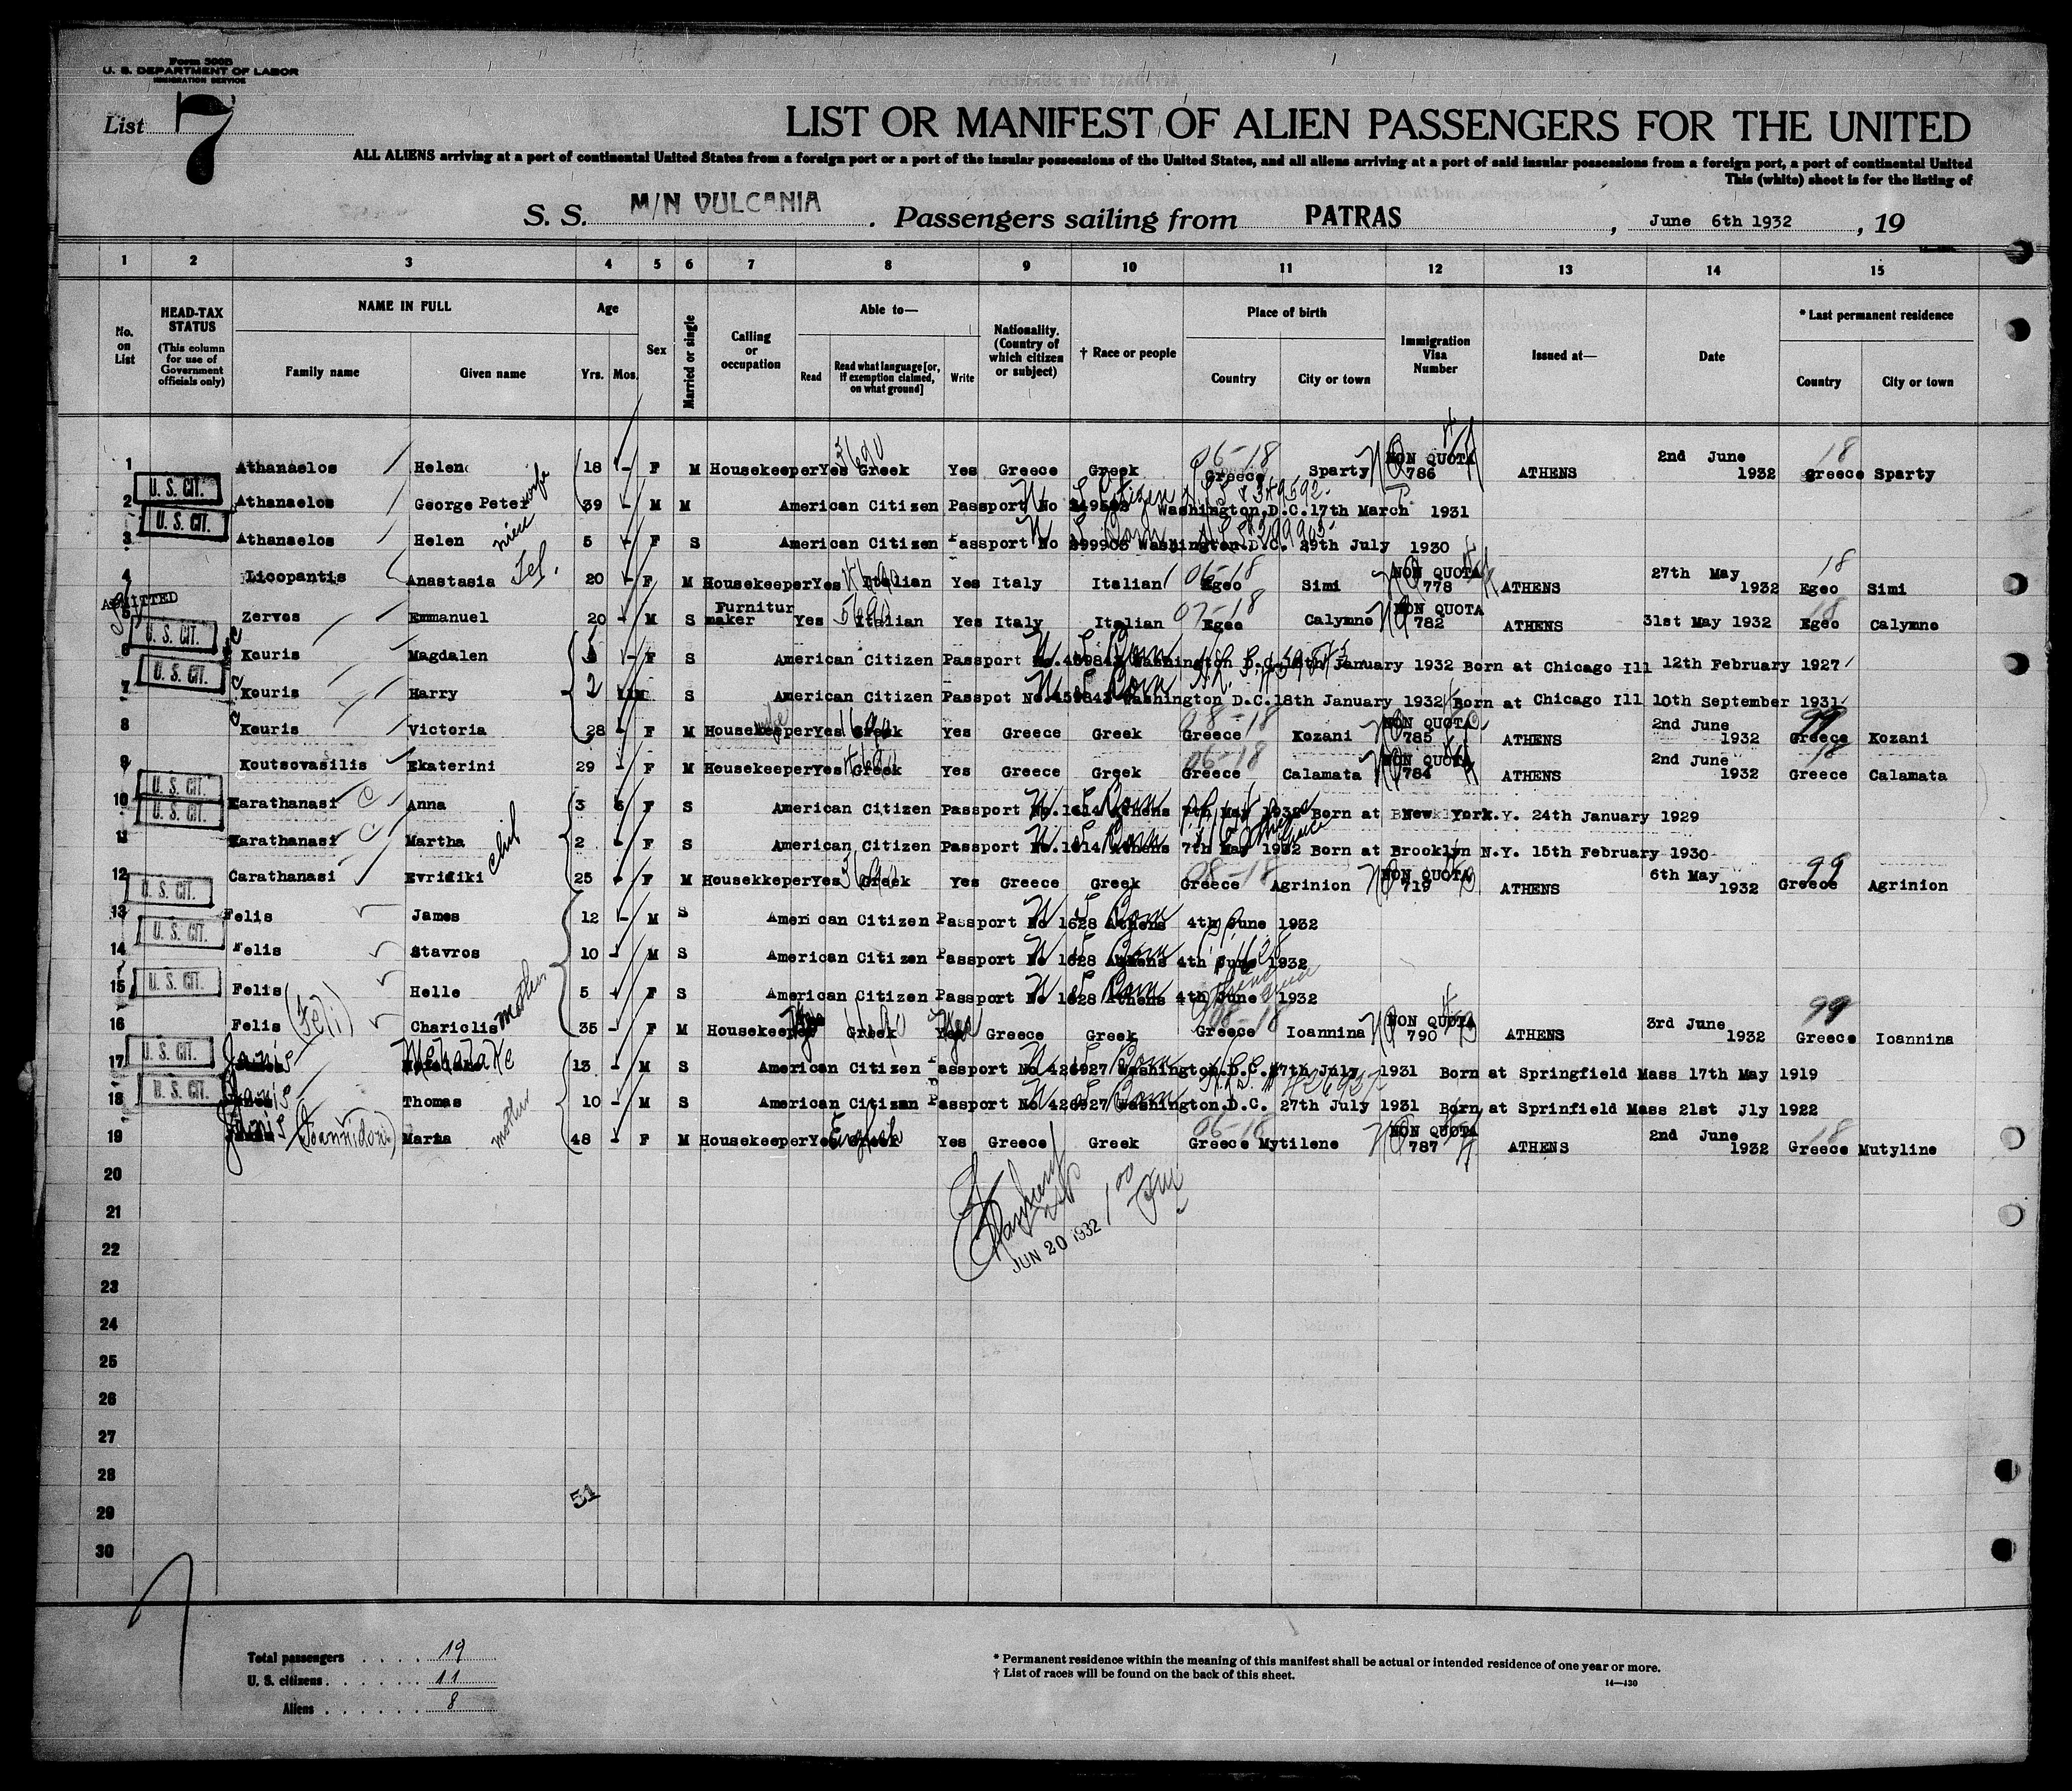 Form 500B
U. S. DEPARTMENT OF LABOR
IMMIGRATION SERVICE
List 7
LIST OR MANIFEST OF ALIEN PASSENGERS FOR THE UNITED
ALL ALIENS arriving at a port of continental United States from a foreign port or a port of the insular possessions of the United States, and all aliens arriving at a port of said insular possessions from a foreign port, a port of continental United
This (white) sheet is for the listing of
S. S. M/N VULCANIA. Passengers sailing from PATRAS, June 6th 1932, 19
1 2 3 4 5 6 7 8 9 10 11 12 13 14 15
No. on List
HEAD-TAX STATUS (This column for use of Government officials only)
NAME IN FULL
Family name Given name
Age
Yrs. Mos.
Sex
Married or single
Calling or occupation
Able to—
Read Read what language [or, if exemption claimed, on what ground] Write
Nationality. (Country of which citizen or subject)
† Race or people
Place of birth
Country City or town
Immigration Visa Number
Issued at—
Date
* Last permanent residence
Country City or town
1 Athanaelos Helen 18 - F M Housekeeper Yes Greek Yes Greece Greek 06-18 Greece Sparty NON QUOTA 786 ATHENS 2nd June 1932 18 Greece Sparty
U. S. CIT.
2 Athanaelos George Peter wife 39 - M M American Citizen Passport No Washington D.C. 17th March 1931
U. S. CIT.
3 Athanaelos Helen niece 5 - F S American Citizen Passport No 299905 Washington D.C. 29th July 1930
4 Licopantis Anastasia 20 - F M Housekeeper Yes Italian Yes Italy Italian 06-18 Egeo Simi NON QUOTA 778 ATHENS 27th May 1932 18 Egeo Simi
ADMITTED
5 Zervos Emmanuel 20 - M S Furnitur maker Yes Italian Yes Italy Italian 07-18 Egeo Calymno NON QUOTA 782 ATHENS 31st May 1932 18 Egeo Calymno
U. S. CIT.
6 Kouris Magdalen 5 - F S American Citizen Passport No. Washington D.C. 18th January 1932 Born at Chicago Ill 12th February 1927
U. S. CIT.
7 Kouris Harry 2 S American Citizen Passpot No. 459843 Washington D.C. 18th January 1932 Born at Chicago Ill 10th September 1931
8 Kouris Victoria 28 - F M Housekeeper wife Yes Greek Yes Greece Greek 08-18 Greece Kozani NON QUOTA 785 ATHENS 2nd June 1932 99 Greece Kozani
9 Koutsovasilis Ekaterini 29 - F M Housekeeper Yes Greek Yes Greece Greek 06-18 Greece Calamata NON QUOTA 784 ATHENS 2nd June 1932 18 Greece Calamata
U. S. CIT.
10 Karathanasi Anna 3 F S American Citizen Passport No. 1614 Athens 7th May 1932 Born at New York.Y. 24th January 1929
U. S. CIT.
11 Karathanasi Martha 2 - F S American Citizen Passport No. 1614 Athens 7th May 1932 Born at Brooklyn N.Y. 15th February 1930
12 Carathanasi Evridiki 25 - F M Housekkeeper Yes Greek Yes Greece Greek 08-18 Greece Agrinion NON QUOTA 719 ATHENS 6th May 1932 99 Greece Agrinion
U. S. CIT.
13 Felis James 12 - M S American Citizen Passport No 1628 Athens 4th June 1932
U. S. CIT.
14 Felis Stavros 10 - M S American Citizen Passport No 1628 Athens 4th June 1932
U. S. CIT.
15 Felis Helle 5 F S American Citizen Passport No 1628 Athens 4th June 1932
16 Felis (Feli) Chariclis mother 35 - F M Housekeeper Greek Yes Greece Greek 08-18 Greece Ioannina NON QUOTA 790 ATHENS 3rd June 1932 99 Greece Ioannina
U. S. CIT.
17 Janis 13 - M S American Citizen Passport No 426927 Washington.D.C. 27th July 1931 Born at Springfield Mass 17th May 1919
U. S. CIT.
18 Janis Thomas 10 - M S American Citizen Passport No 426927 Washington.D.C. 27th July 1931 Born at Sprinfield Mass 21st Jly 1922
19 Janis (Ioannidou) Maria mother 48 - F M Housekeeper Yes English Yes Greece Greek 06-18 Greece Mytilene NON QUOTA 787 ATHENS 2nd June 1932 18 Greece Mutyline
20
JUN 20 1932
21
22
23
24
25
26
27
28
51
29
30
Total passengers . . . . 19
U. S. citizens . . . . . . 11
Aliens . . . . . . 8
* Permanent residence within the meaning of this manifest shall be actual or intended residence of one year or more.
† List of races will be found on the back of this sheet.
14—430